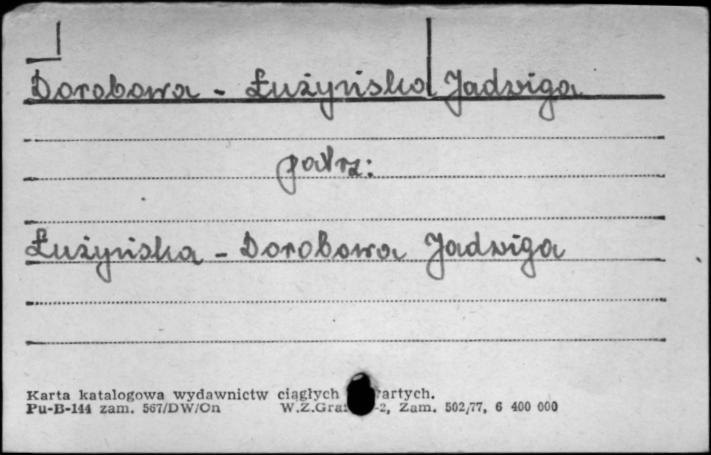 Dorobowa - Łużyńska Jadwiga
patrz:
Łużyńska - Dorobowa Jadwiga
Karta katalogowa wydawnictw ciągłych
Pu-B-144 zam. 567/DW/On W.Z.Graf -2, Zam. 502/77, 6 400 000